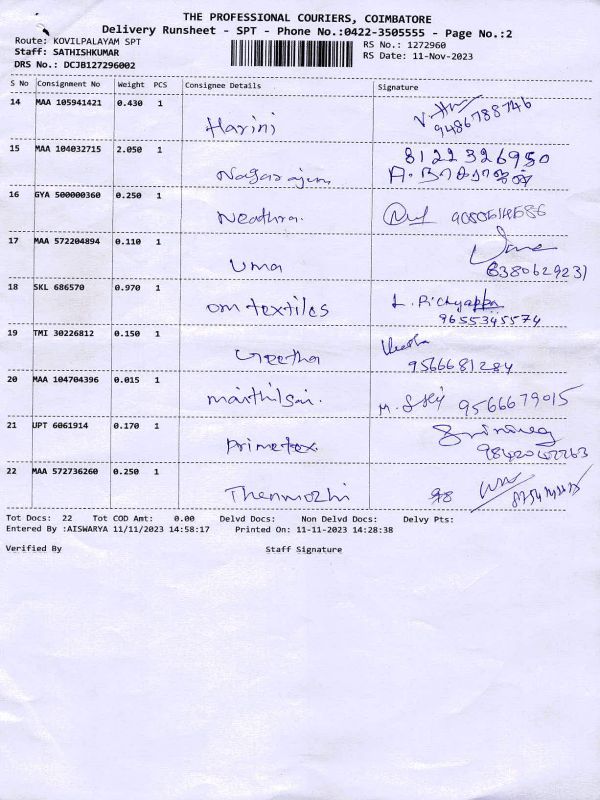 THE PROFESSIONAL COURIERS, COIMBATORE
Delivery Runsheet - SPT - Phone No.:0422-3505555 - Page No.:2
Route: KOVILPALAYAM SPT
RS No.: 1272960
Staff: SATHISHKUMAR
RS Date: 11-Nov-2023
DRS No.: DCJB127296002
S No Consignment No Weight PCS Consignee Details Signature
14 MAA 105941421 0.430 1
Harini
9486788746
15 MAA 104032715 2.050 1
8122326950
Nagarajun
A. நாகராஜன்
16 GYA 500000360 0.250 1
Neathra.
17 MAA 572204894 0.110 1
Uma
6380629231
18 SKL 686570 0.970 1
om textiles
L. Pichyappa
9655345574
19 TMI 30226812 0.150 1
Geetha
9566681284
20 MAA 104704396 0.015 1
maithilsai.
9566679015
21 UPT 6061914 0.170 1
Primetex.
22 MAA 572736260 0.250 1
Thenmozhi
Tot Docs: 22 Tot COD Amt: 0.00 Delvd Docs: Non Delvd Docs: Delvy Pts:
Entered By :AISWARYA 11/11/2023 14:58:17 Printed On: 11-11-2023 14:28:38
Verified By Staff Signature